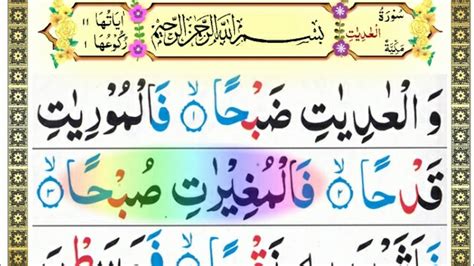 سُوْرَةُ الْعٰدِيٰتِ مَكِّيَّةٌ
بِسْمِ اللّٰهِ الرَّحْمٰنِ الرَّحِيْمِ
اٰيَاتُهَا ١١
رُكُوْعُهَا ١
وَالْعٰدِيٰتِ ضَبْحًا ۙ‏ ١ فَالْمُوْرِيٰتِ
قَدْحًا ۙ‏ ٢ فَالْمُغِيْرٰتِ صُبْحًا ۙ‏ ٣